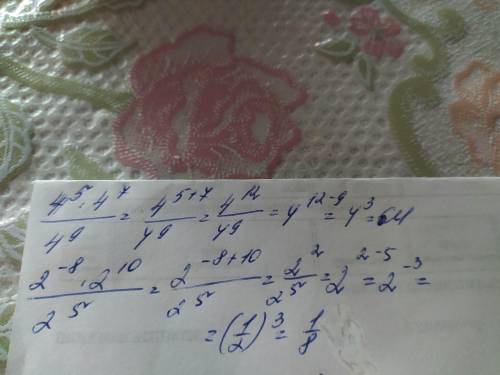 4⁵·4⁷/4⁹ = 4⁵⁺⁷/4⁹ = 4¹²/4⁹ = 4¹²⁻⁹ = 4³ = 64
2⁻⁸·2¹⁰/2⁵ = 2⁻⁸⁺¹⁰/2⁵ = 2²/2⁵ = 2²⁻⁵ = 2⁻³ =
= (1/2)³ = 1/8